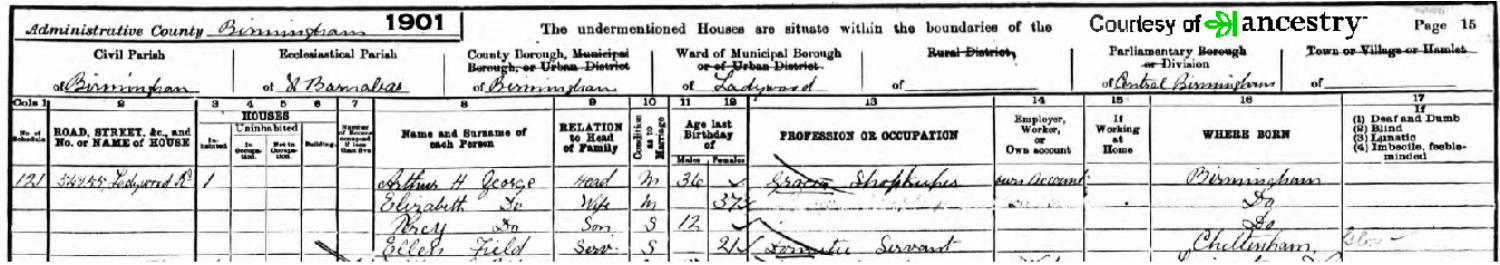 Administrative County Birmingham 1901 The undermentioned Houses are situate within the boundaries of the Courtesy of ancestry Page 15
Civil Parish Ecclesiastical Parish County Borough, Municipal Borough, or Urban District Ward of Municipal Borough or of Urban District Rural District, Parliamentary Borough or Division Town or Village or Hamlet
of Birmingham of St Barnabas of Birmingham of Ladywood of of Central Birmingham of
Cols 1 2 3 4 5 6 7 8 9 10 11 12 13 14 15 16 17
No. of Schedule ROAD, STREET, &c., and No. or NAME of HOUSE HOUSES Inhabited Uninhabited In Occupation. Not in Occupation. Building. Number of Rooms occupied if less than five Name and Surname of each Person RELATION to Head of Family Condition as to Marriage Age last Birthday of Males Females PROFESSION OR OCCUPATION Employer, Worker, or Own account If Working at Home WHERE BORN If (1) Deaf and Dumb (2) Blind (3) Lunatic (4) Imbecile, feeble-minded
121 Ladywood Rd 1 Arthur H George Head M 36 Shopkeeper own account Birmingham
Elizabeth Do Wife M 37 Do
Percy Do Son S 12 Do
Ellen Field Serv. S 21 Domestic Servant Cheltenham Glos